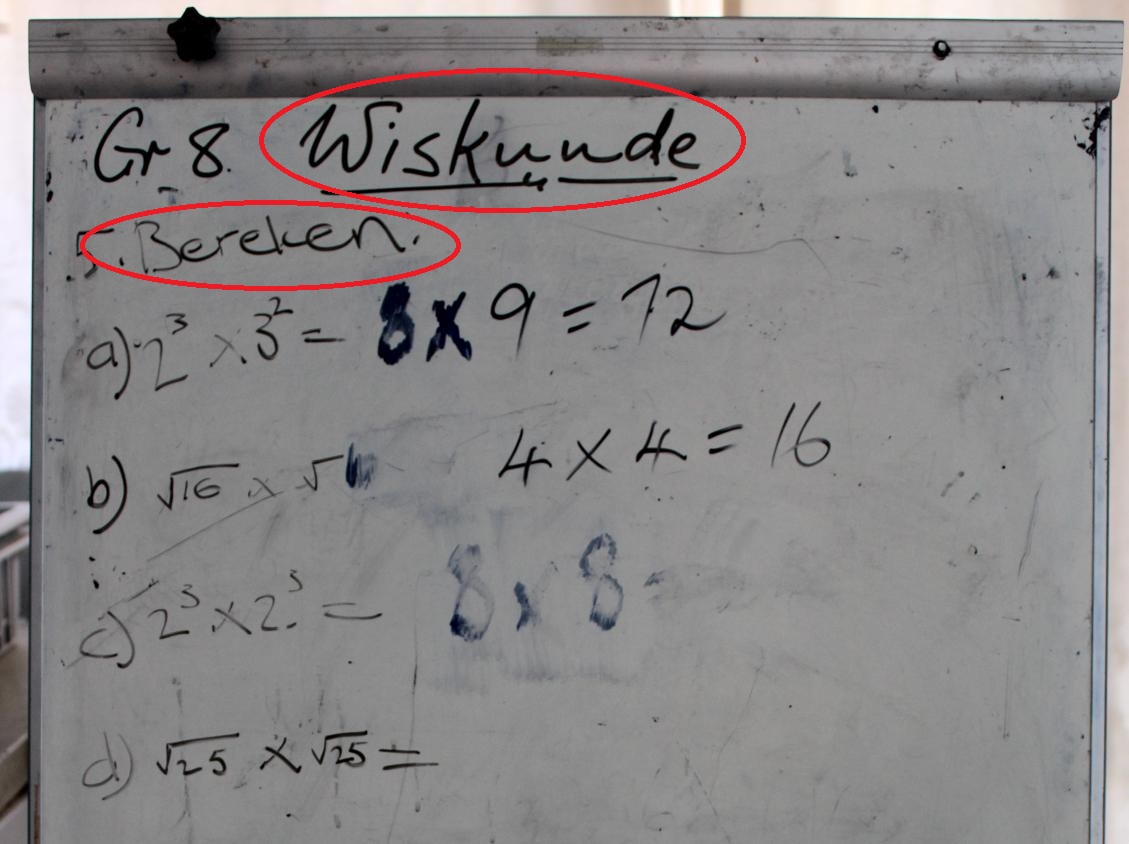 Gr 8 Wiskunde
5. Bereken.
a) 2³ × 3² = 8 × 9 = 72
b) √16 × √ 4 × 4 = 16
c) 2³ × 2³ = 8 × 8 =
d) √25 × √25 =